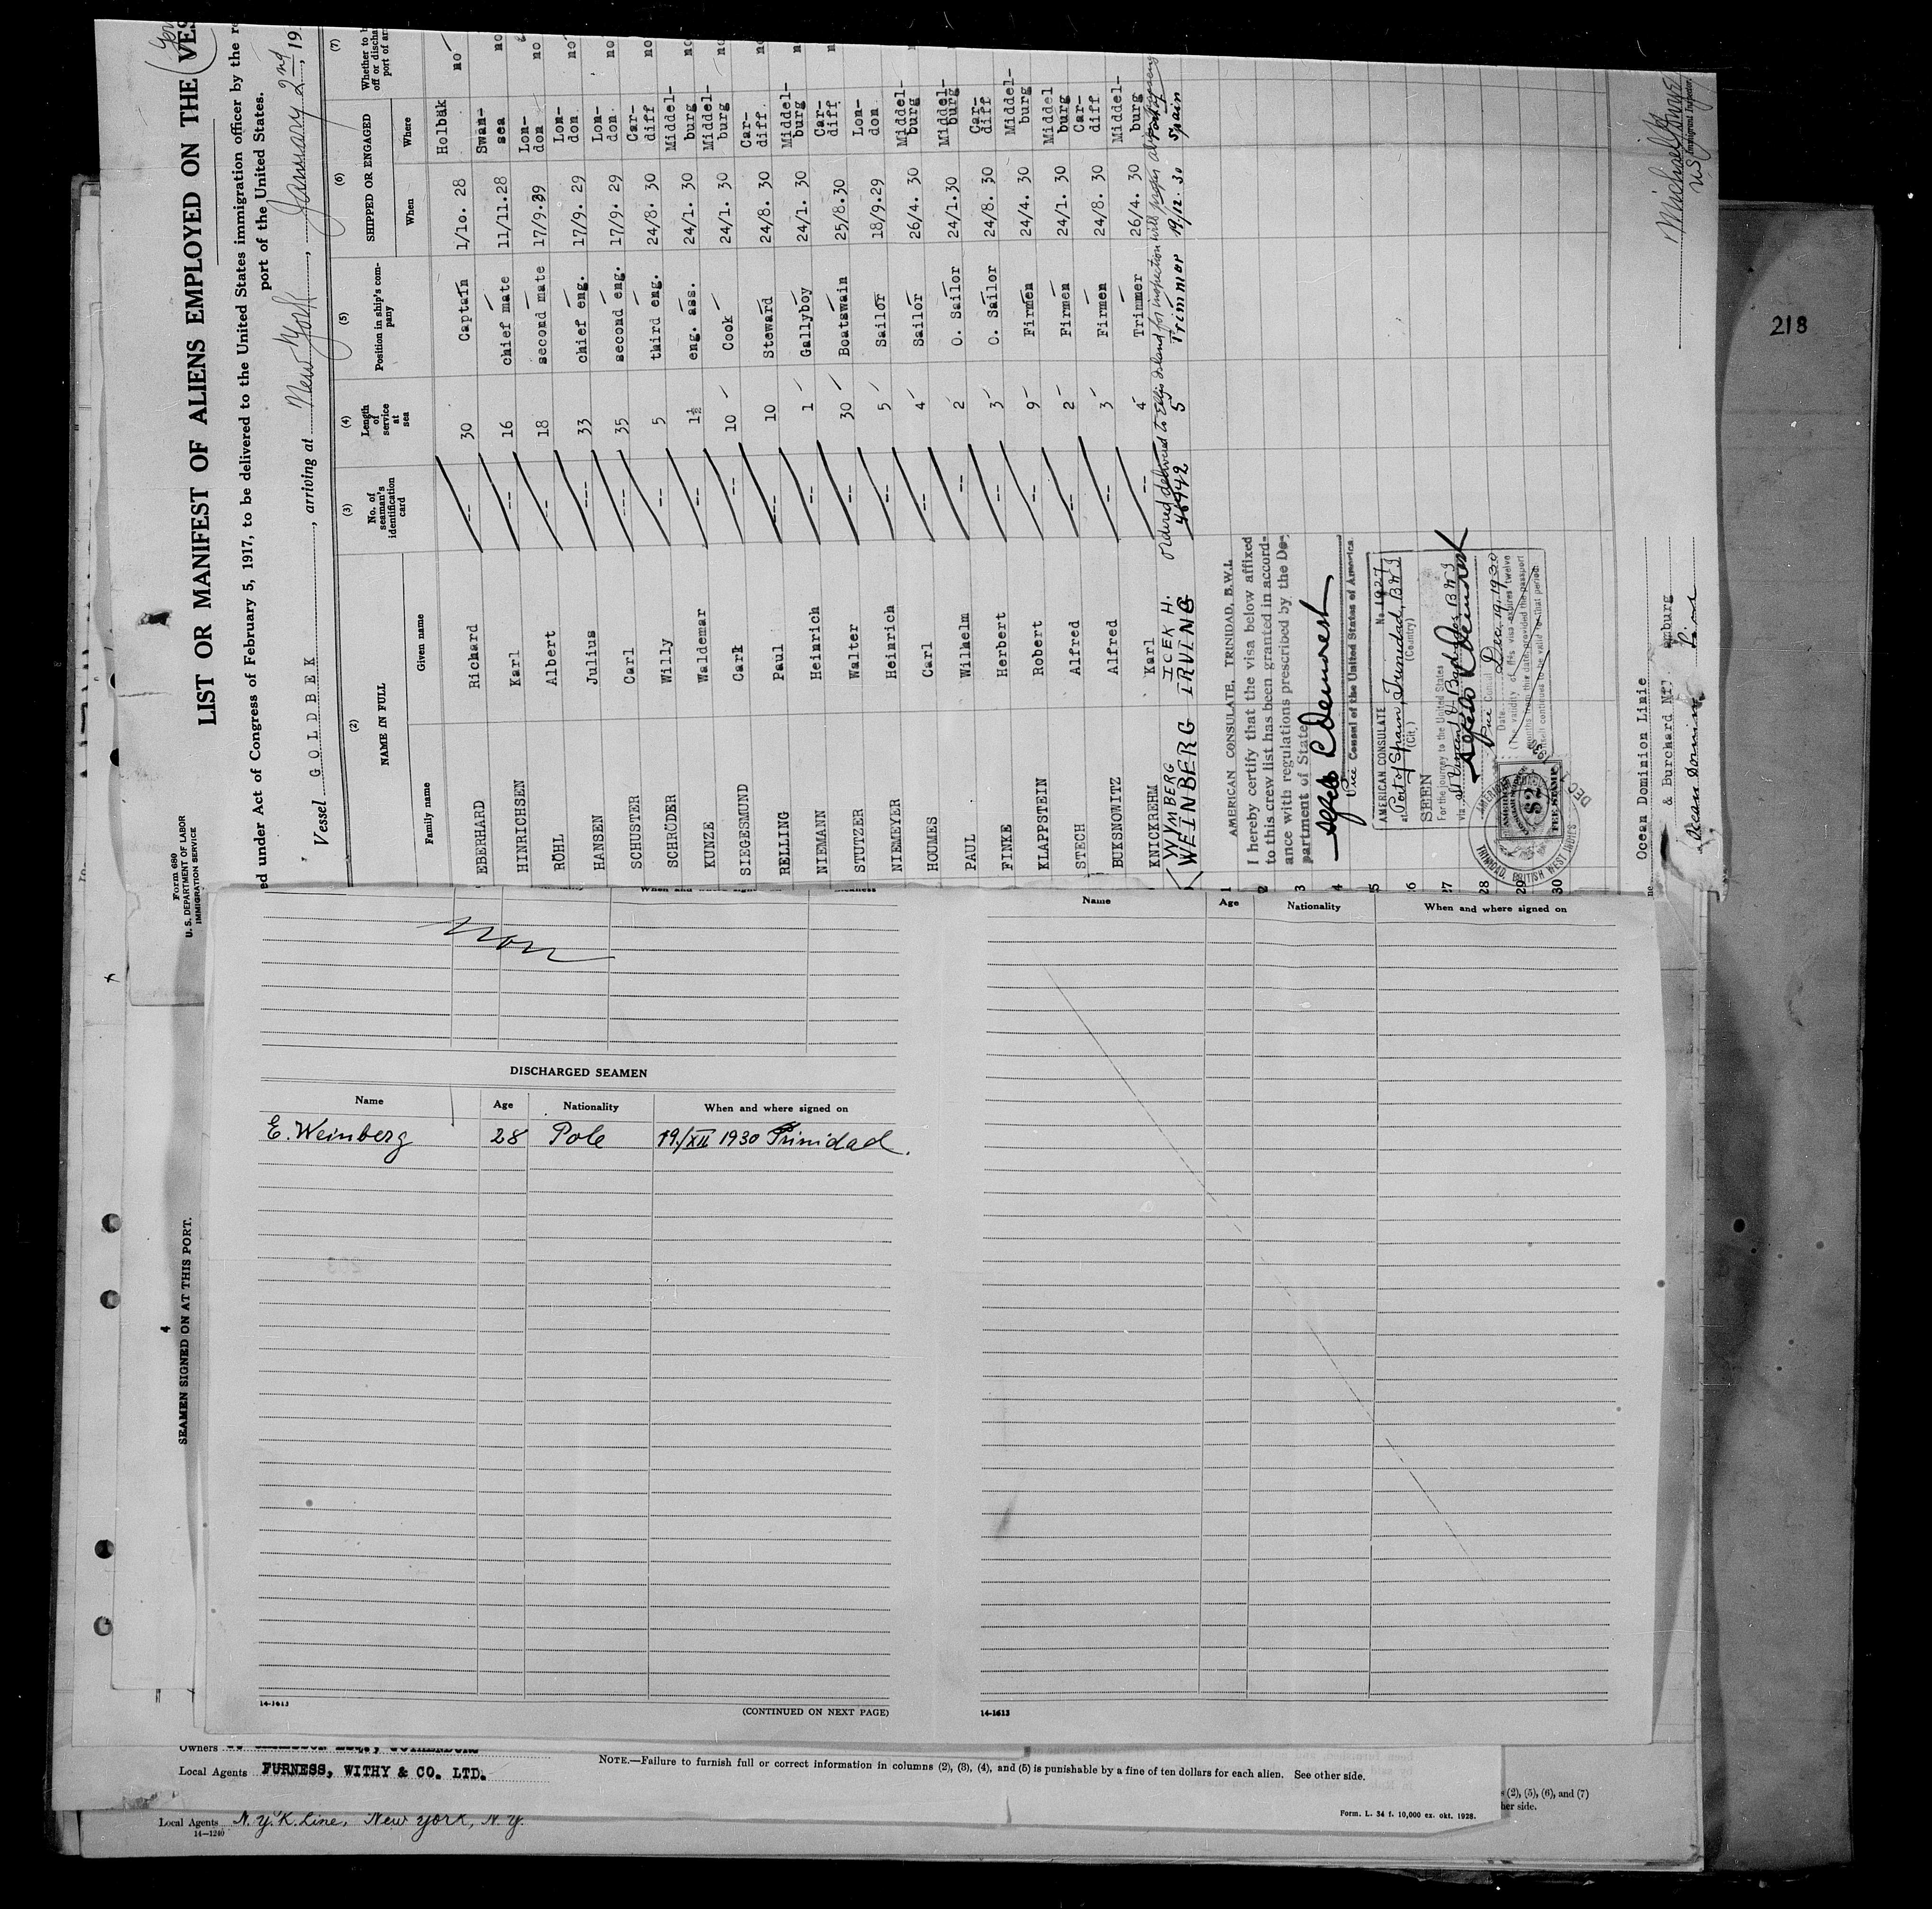 Form 680
U. S. DEPARTMENT OF LABOR
IMMIGRATION SERVICE
LIST OR MANIFEST OF ALIENS EMPLOYED ON THE VES
ed under Act of Congress of February 5, 1917, to be delivered to the United States immigration officer by the re
port of the United States.
Vessel GOLDBEK, arriving at New York, January 2nd, 19
(2) (3) (4) (5) (6) (7)
NAME IN FULL No. of seaman's identification card Length of service at sea Position in ship's company SHIPPED OR ENGAGED
Whether to b
off or discha
port of ar
Family name Given name When Where
EBERHARD Richard -- 30 Captain 1/10. 28 Holbäk no
HINRICHSEN Karl -- 16 chief mate 11/11. 28 Swan-sea no
RÖHL Albert -- 18 second mate 17/9. 29 Lon-don no
HANSEN Julius --- 33 chief eng. 17/9. 29 Lon-don no
SCHUSTER Carl --- 35 second eng. 17/9. 29 Lon-don no
SCHRÖDER Willy -- 5 third eng. 24/8. 30 Car-diff no
KUNZE Waldemar -- 1½ eng. ass. 24/1. 30 Middel-burg no
SIEGESMUND Cark -- 10 Cook 24/1. 30 Middel-burg no
RELLING Paul --- 10 Steward 24/8. 30 Car-diff no
NIEMANN Heinrich -- 1 Gallyboy 24/1. 30 Middel-burg n
STUTZER Walter -- 30 Boatswain 25/8. 30 Car-diff n
NIEMEYER Heinrich -- 5 Sailor 18/9. 29 Lon-don
HOUMES Carl -- 4 Sailor 26/4. 30 Middel-burg
PAUL Wilhelm -- 2 O. Sailor 24/1. 30 Middel-burg
FINKE Herbert -- 3 O. Sailor 24/8. 30 Car-diff
KLAPPSTEIN Robert -- 9 Firmen 24/4. 30 Middel-burg
STECH Alfred -- 2 Firmen 24/1. 30 Middel burg
BUKSNOWITZ Alfred -- 3 Firmen 24/8. 30 Car-diff
KNICKREHM Karl -- 4 Trimmer 26/4. 30 Middel-burg
ordered delivered to Ellis Island for inspection
WYMBERG ICEK H.
WEINBERG IRVING 46942 5 Trimmer 19/12. 30 Port of Spain
AMERICAN CONSULATE, TRINIDAD, B.W.I.
I hereby certify that the visa below affixed
to this crew list has been granted in accord-
ance with regulations prescribed by the De-
partment of State
Vice Consul of the United States of America.
AMERICAN CONSULATE No. 1927
at Port of Spain, Trinidad, B W I
(City) (Country)
SEEN
For the journey to the United States
via St Vincent & Barbados, B W I
Vice Consul
Date Dec. 19, 1930
(The validity of this visa expires twelve
months from this date provided the passport
itself continues to be valid for that period
AMERICAN
$2
FEE STAMP
TRINIDAD, BRITISH WEST INDIES
DEC
1
2
3
4
5
6
7
28
29
30
Ocean Dominion Linie
& Burchard Nf. amburg
Ocean Dominion Line
Immigrant Inspector.
218
SEAMEN SIGNED ON AT THIS PORT.
4
non
DISCHARGED SEAMEN
Name Age Nationality When and where signed on
E. Weinberg 28 Pole 19./XII 1930 Trinidad.
14-1613
(CONTINUED ON NEXT PAGE)
Name Age Nationality When and where signed on
14-1613
Owners
Local Agents FURNESS, WITHY & CO. LTD.
NOTE.—Failure to furnish full or correct information in columns (2), (3), (4), and (5) is punishable by a fine of ten dollars for each alien. See other side.
Form. L. 34 f. 10,000 ex. okt. 1928.
(2), (5), (6), and (7)
her side.
Local Agents N. Y. K. Line, New York, N. Y.
14—1240